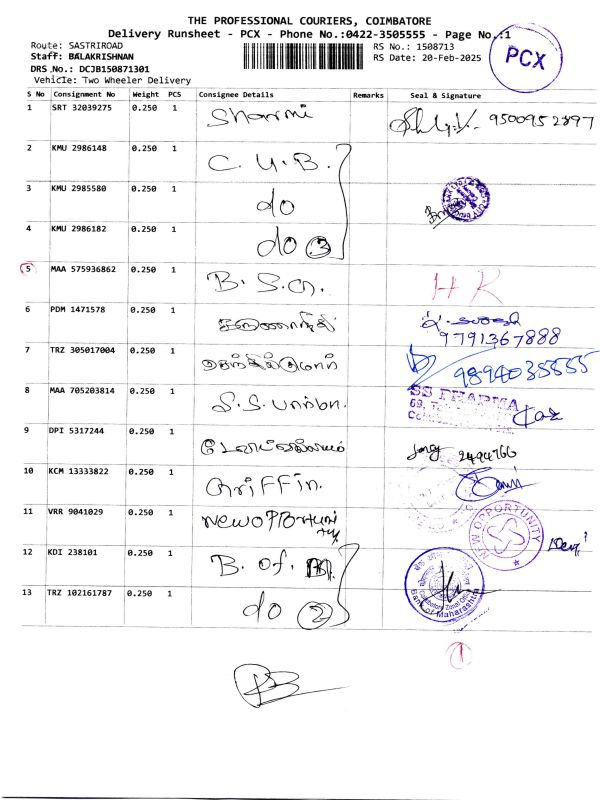 THE PROFESSIONAL COURIERS, COIMBATORE
Delivery Runsheet - PCX - Phone No.:0422-3505555 - Page No.:1
Route: SASTRIROAD
RS No.: 1508713
Staff: BALAKRISHNAN
RS Date: 20-Feb-2025
DRS No.: DCJB150871301
Vehicle: Two Wheeler Delivery
PCX
S No Consignment No Weight PCS Consignee Details Remarks Seal & Signature
1 SRT 32039275 0.250 1 Sharmi 9500952897
2 KMU 2986148 0.250 1 C.U.B.
3 KMU 2985580 0.250 1 do
4 KMU 2986182 0.250 1 do 3
5 MAA 575936862 0.250 1 B.S.N. HR
6 PDM 1471578 0.250 1 9791367888
7 TRZ 305017004 0.250 1 9894035555
8 MAA 705203814 0.250 1 S.S. SS DHARMA
9 DPI 5317244 0.250 1 2494766
10 KCM 13333822 0.250 1 Griffin.
11 VRR 9041029 0.250 1 New opportunity NEW OPPORTUNITY
12 KDI 238101 0.250 1 B. of. M.
13 TRZ 102161787 0.250 1 do 2 Bank of Maharashtra
1